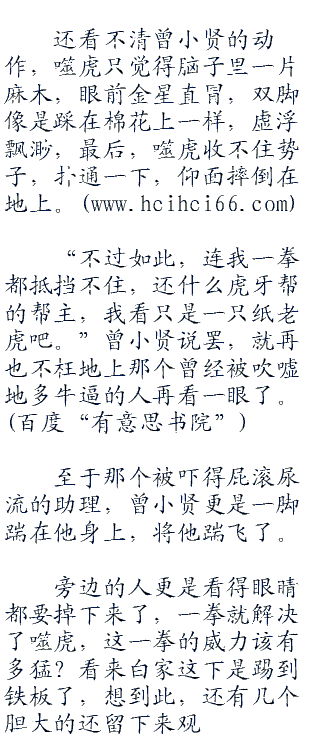 还看不清曾小贤的动
作，噬虎只觉得脑子里一片
麻木，眼前金星直冒，双脚
像是踩在棉花上一样，虚浮
飘渺，最后，噬虎收不住势
子，扑通一下，仰面摔倒在
地上。(www.hcihci66.com)
“不过如此，连我一拳
都抵挡不住，还什么虎牙帮
的帮主，我看只是一只纸老
虎吧。”曾小贤说罢，就再
也不枉地上那个曾经被吹嘘
地多牛逼的人再看一眼了。
(百度“有意思书院”)
至于那个被吓得屁滚尿
流的助理，曾小贤更是一脚
踹在他身上，将他踹飞了。
旁边的人更是看得眼睛
都要掉下来了，一拳就解决
了噬虎，这一拳的威力该有
多猛？看来白家这下是踢到
铁板了，想到此，还有几个
胆大的还留下来观